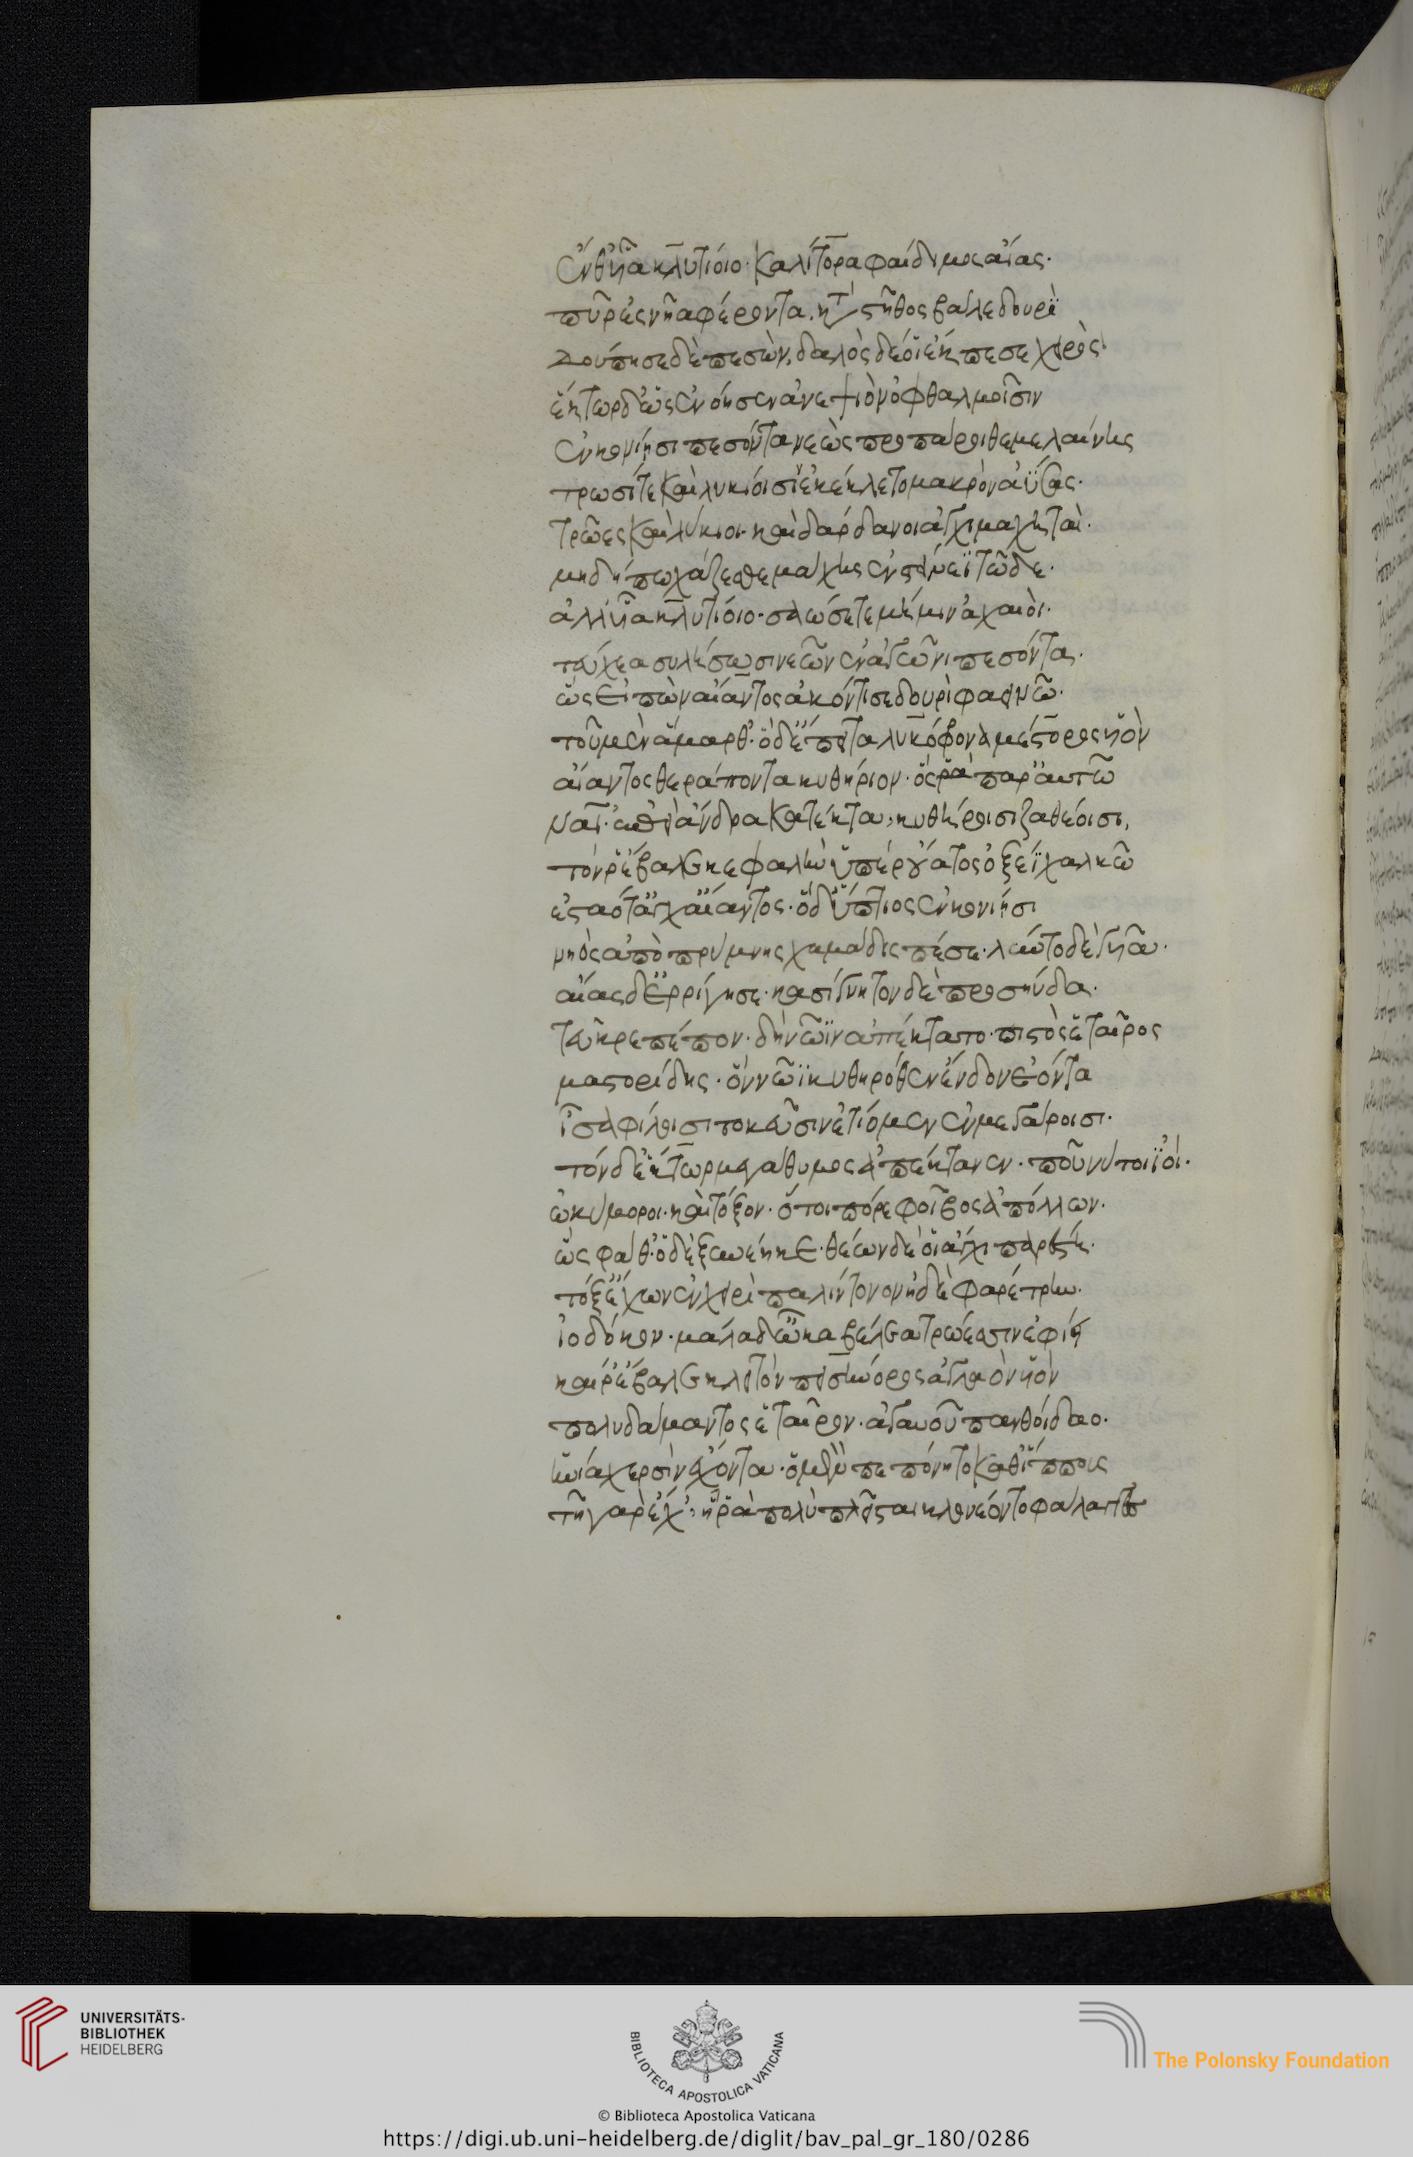 ἔνθ' υἷα κλυτίοιο· καλήτορα φαίδιμος αἴας·
πῦρ ἐς νῆα φέροντα. κατὰ στῆθος βάλε δουρί
δούπησε δὲ πεσὼν, δαλὸς δέ οἱ ἔκπεσε χειρὸς·
ἕκτωρ δ' ὡς ἐνόησεν ἀνεψιὸν ὀφθαλμοῖσιν
ἐν κονίῃσι πεσόντα νεὼς προπάροιθε μελαίνης
τρωσί τε καὶ λυκίοισιν ἐκέκλετο μακρὸν ἀΰσας·
τρῶες καὶ λύκιοι· καὶ δάρδανοι ἀγχιμαχηταὶ·
μὴ δή πω χάζεσθε μάχης ἐν στείνεϊ τῶδε·
ἀλλ' υἷα κλυτίοιο· σαώσετε μή μιν ἀχαιοὶ·
τεύχεα συλήσωσι νεῶν ἐν ἀγῶνι πεσόντα·
ὣς εἰπὼν αἴαντος ἀκόντισε δουρὶ φαεινῶ·
τοῦ μὲν ἅμαρθ'· ὁ δ' ἔπειτα λυκόφρονα μέστορος υἱὸν
αἴαντος θεράποντα κυθήριον· ὅς ῥα παρ' αὐτῶ
ναῖ'· ἐπεὶ ἄνδρα κατέκτα, κυθήροισι ζαθέοισι,
τόν ῥ' ἔβαλεν κεφαλὴν ὑπὲρ οὔατος ὀξέϊ χαλκῶ
ἑσταότ' ἄγχ' αἴαντος· ὁ δ' ὕπτιος ἐν κονίῃσι
νηὸς ἀπὸ πρύμνης χαμάδις πέσε· λύντο δὲ γυῖα·
αἴας δ' ἐρρίγησε· κασίγνητον δὲ προσηύδα·
τεῦκρε πέπον· δὴ νῶϊν ἀπέκτατο· πιστὸς ἑταῖρος
μαστορίδης· ὃν νῶϊ κυθηρόθεν ἔνδον ἐόντα
ἶσα φίλοισι τοκεῦσιν ἐτίομεν ἐν μεγάροισι·
τὸν δ' ἕκτωρ μεγάθυμος ἀπέκτανεν· ποῦ νύ τοι ἰοὶ·
ὠκύμοροι· καὶ τόξον· ὅ τοι πόρε φοῖβος ἀπόλλων·
ὣς φάθ'· ὁ δὲ ξυνέηκε· θέων δέ οἱ ἄγχι παρέστη·
τόξον ἔχων ἐν χειρὶ παλίντονον ἠδὲ φαρέτρην·
ἰοδόκον· μάλα δ' ὦκα βέλεα τρώεσσιν ἐφίει
καί ῥ' ἔβαλεν κλεῖτον πεισήνορος ἀγλαὸν υἱὸν
πολυδάμαντος ἑταῖρον· ἀγαυοῦ πανθοΐδαο·
ἡνία χερσὶν ἔχοντα· ὁ μὲν πεπόνητο καθ' ἵππους
τῇ γὰρ ἔχ', ᾗ ῥα πολὺ πλεῖσται κλονέοντο φάλαγγες
UNIVERSITÄTS-
BIBLIOTHEK
HEIDELBERG
BIBLIOTECA APOSTOLICA VATICANA
The Polonsky Foundation
© Biblioteca Apostolica Vaticana
https://digi.ub.uni-heidelberg.de/diglit/bav_pal_gr_180/0286